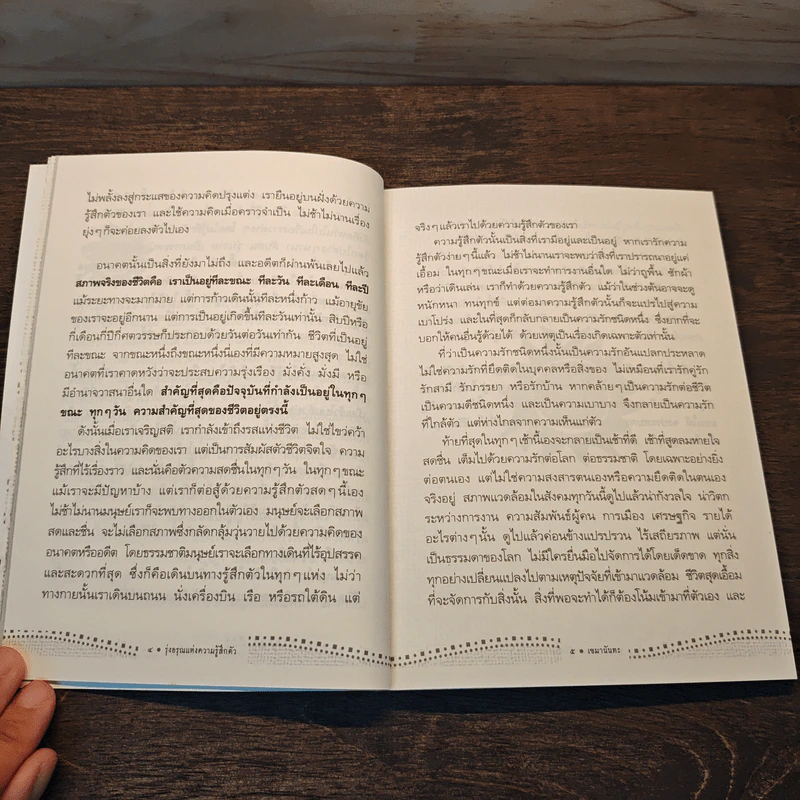 ไม่พลั้งลงสู่กระแสของความคิดปรุงแต่ง เรายืนอยู่บนฝั่งด้วยความ
รู้สึกตัวของเรา และใช้ความคิดเมื่อคราวจำเป็น ไม่ช้าไม่นานเรื่อง
ยุ่งๆ ก็จะค่อยลงตัวไปเอง
อนาคตนั้นเป็นสิ่งที่ยังมาไม่ถึง และอดีตก็ผ่านพ้นเลยไปแล้ว
สภาพจริงของชีวิตคือ เราเป็นอยู่ทีละขณะ ทีละวัน ทีละเดือน ทีละปี
แม้ระยะทางจะมากมาย แต่การก้าวเดินนั้นทีละหนึ่งก้าว แม้อายุขัย
ของเราจะอยู่อีกนาน แต่การเป็นอยู่เกิดขึ้นทีละวันเท่านั้น สิบปีหรือ
กี่เดือนกี่ปีกี่ศตวรรษก็ประกอบด้วยวันต่อวันเท่ากัน ชีวิตที่เป็นอยู่
ทีละขณะ จากขณะหนึ่งถึงขณะหนึ่งนี่เองที่มีความหมายสูงสุด ไม่ใช่
อนาคตที่เราคาดหวังว่าจะประสบความรุ่งเรือง มั่งคั่ง มั่งมี หรือ
มีอำนาจวาสนาอื่นใด สำคัญที่สุดคือปัจจุบันที่กำลังเป็นอยู่ในทุกๆ
ขณะ ทุกๆ วัน ความสำคัญที่สุดของชีวิตอยู่ตรงนี้
ดังนั้นเมื่อเราเจริญสติ เรากำลังเข้าถึงรสแห่งชีวิต ไม่ใช่ไขว่คว้า
อะไรบางสิ่งในความคิดของเรา แต่เป็นการสัมผัสตัวชีวิตจิตใจ ความ
รู้สึกที่ไร้เรื่องราว และนั่นคือตัวความสดชื่นในทุกๆ วัน ในทุกๆ ขณะ
แม้เราจะมีปัญหาบ้าง แต่เราก็ต่อสู้ด้วยความรู้สึกตัวสดๆ นี้เอง
ไม่ช้าไม่นานมนุษย์เราก็จะพบทางออกในตัวเอง มนุษย์จะเลือกสภาพ
สดและชื่น จะไม่เลือกสภาพซึ่งกลัดกลุ้มวุ่นวายไปด้วยความคิดของ
อนาคตหรืออดีต โดยธรรมชาติมนุษย์เราจะเลือกทางเดินที่ไร้อุปสรรค
และสะดวกที่สุด ซึ่งก็คือเดินบนทางรู้สึกตัวในทุกๆ แห่ง ไม่ว่า
ทางกายนั้นเราเดินบนถนน นั่งเครื่องบิน เรือ หรือรถใต้ดิน แต่
๔ ● รุ่งอรุณแห่งความรู้สึกตัว
จริงๆ แล้วเราไปด้วยความรู้สึกตัวของเรา
ความรู้สึกตัวนั้นเป็นสิ่งที่เรามีอยู่และเป็นอยู่ หากเรารักความ
รู้สึกตัวง่ายๆ นี้แล้ว ไม่ช้าไม่นานเราจะพบว่าสิ่งที่เราปรารถนาอยู่แค่
เอื้อม ในทุกๆ ขณะเมื่อเราจะทำการงานอื่นใด ไม่ว่าถูพื้น ซักผ้า
หรือว่าเดินเล่น เราก็ทำด้วยความรู้สึกตัว แม้ว่าในช่วงต้นอาจจะดู
หนักหนา ทนทุกข์ แต่ต่อมาความรู้สึกตัวนั้นก็จะแปรไปสู่ความ
เบาโปร่ง และในที่สุดก็กลับกลายเป็นความรักชนิดหนึ่ง ซึ่งยากที่จะ
บอกให้คนอื่นรู้ด้วยได้ ด้วยเหตุเป็นเรื่องเกิดเฉพาะตัวเท่านั้น
ที่ว่าเป็นความรักชนิดหนึ่งนั้นเป็นความรักอันแปลกประหลาด
ไม่ใช่ความรักที่ยึดติดในบุคคลหรือสิ่งของ ไม่เหมือนที่เรารักคู่รัก
รักสามี รักภรรยา หรือรักบ้าน หากคล้ายๆ เป็นความรักต่อชีวิต
เป็นความดีชนิดหนึ่ง และเป็นความเบาบาง จึงกลายเป็นความรัก
ที่ใกล้ตัว แต่ห่างไกลจากความเห็นแก่ตัว
ท้ายที่สุดในทุกๆ เช้านี้เองจะกลายเป็นเช้าที่ดี เช้าที่สูดลมหายใจ
สดชื่น เต็มไปด้วยความรักต่อโลก ต่อธรรมชาติ โดยเฉพาะอย่างยิ่ง
ต่อตนเอง แต่ไม่ใช่ความสงสารตนเองหรือความยึดติดในตนเอง
จริงอยู่ สภาพแวดล้อมในสังคมทุกวันนี้ดูไปแล้วน่ากังวลใจ น่าวิตก
ระหว่างการงาน ความสัมพันธ์ผู้คน การเมือง เศรษฐกิจ รายได้
อะไรต่างๆ นั้น ดูไปแล้วค่อนข้างแปรปรวน ไร้เสถียรภาพ แต่นั่น
เป็นธรรมดาของโลก ไม่มีใครยื่นมือไปจัดการได้โดยเด็ดขาด ทุกสิ่ง
ทุกอย่างเปลี่ยนแปลงไปตามเหตุปัจจัยที่เข้ามาแวดล้อม ชีวิตสุดเอื้อม
ที่จะจัดการกับสิ่งนั้น สิ่งที่พอจะทำได้ก็ต้องโน้มเข้ามาที่ตัวเอง และ
๕ ● เขมานันทะ